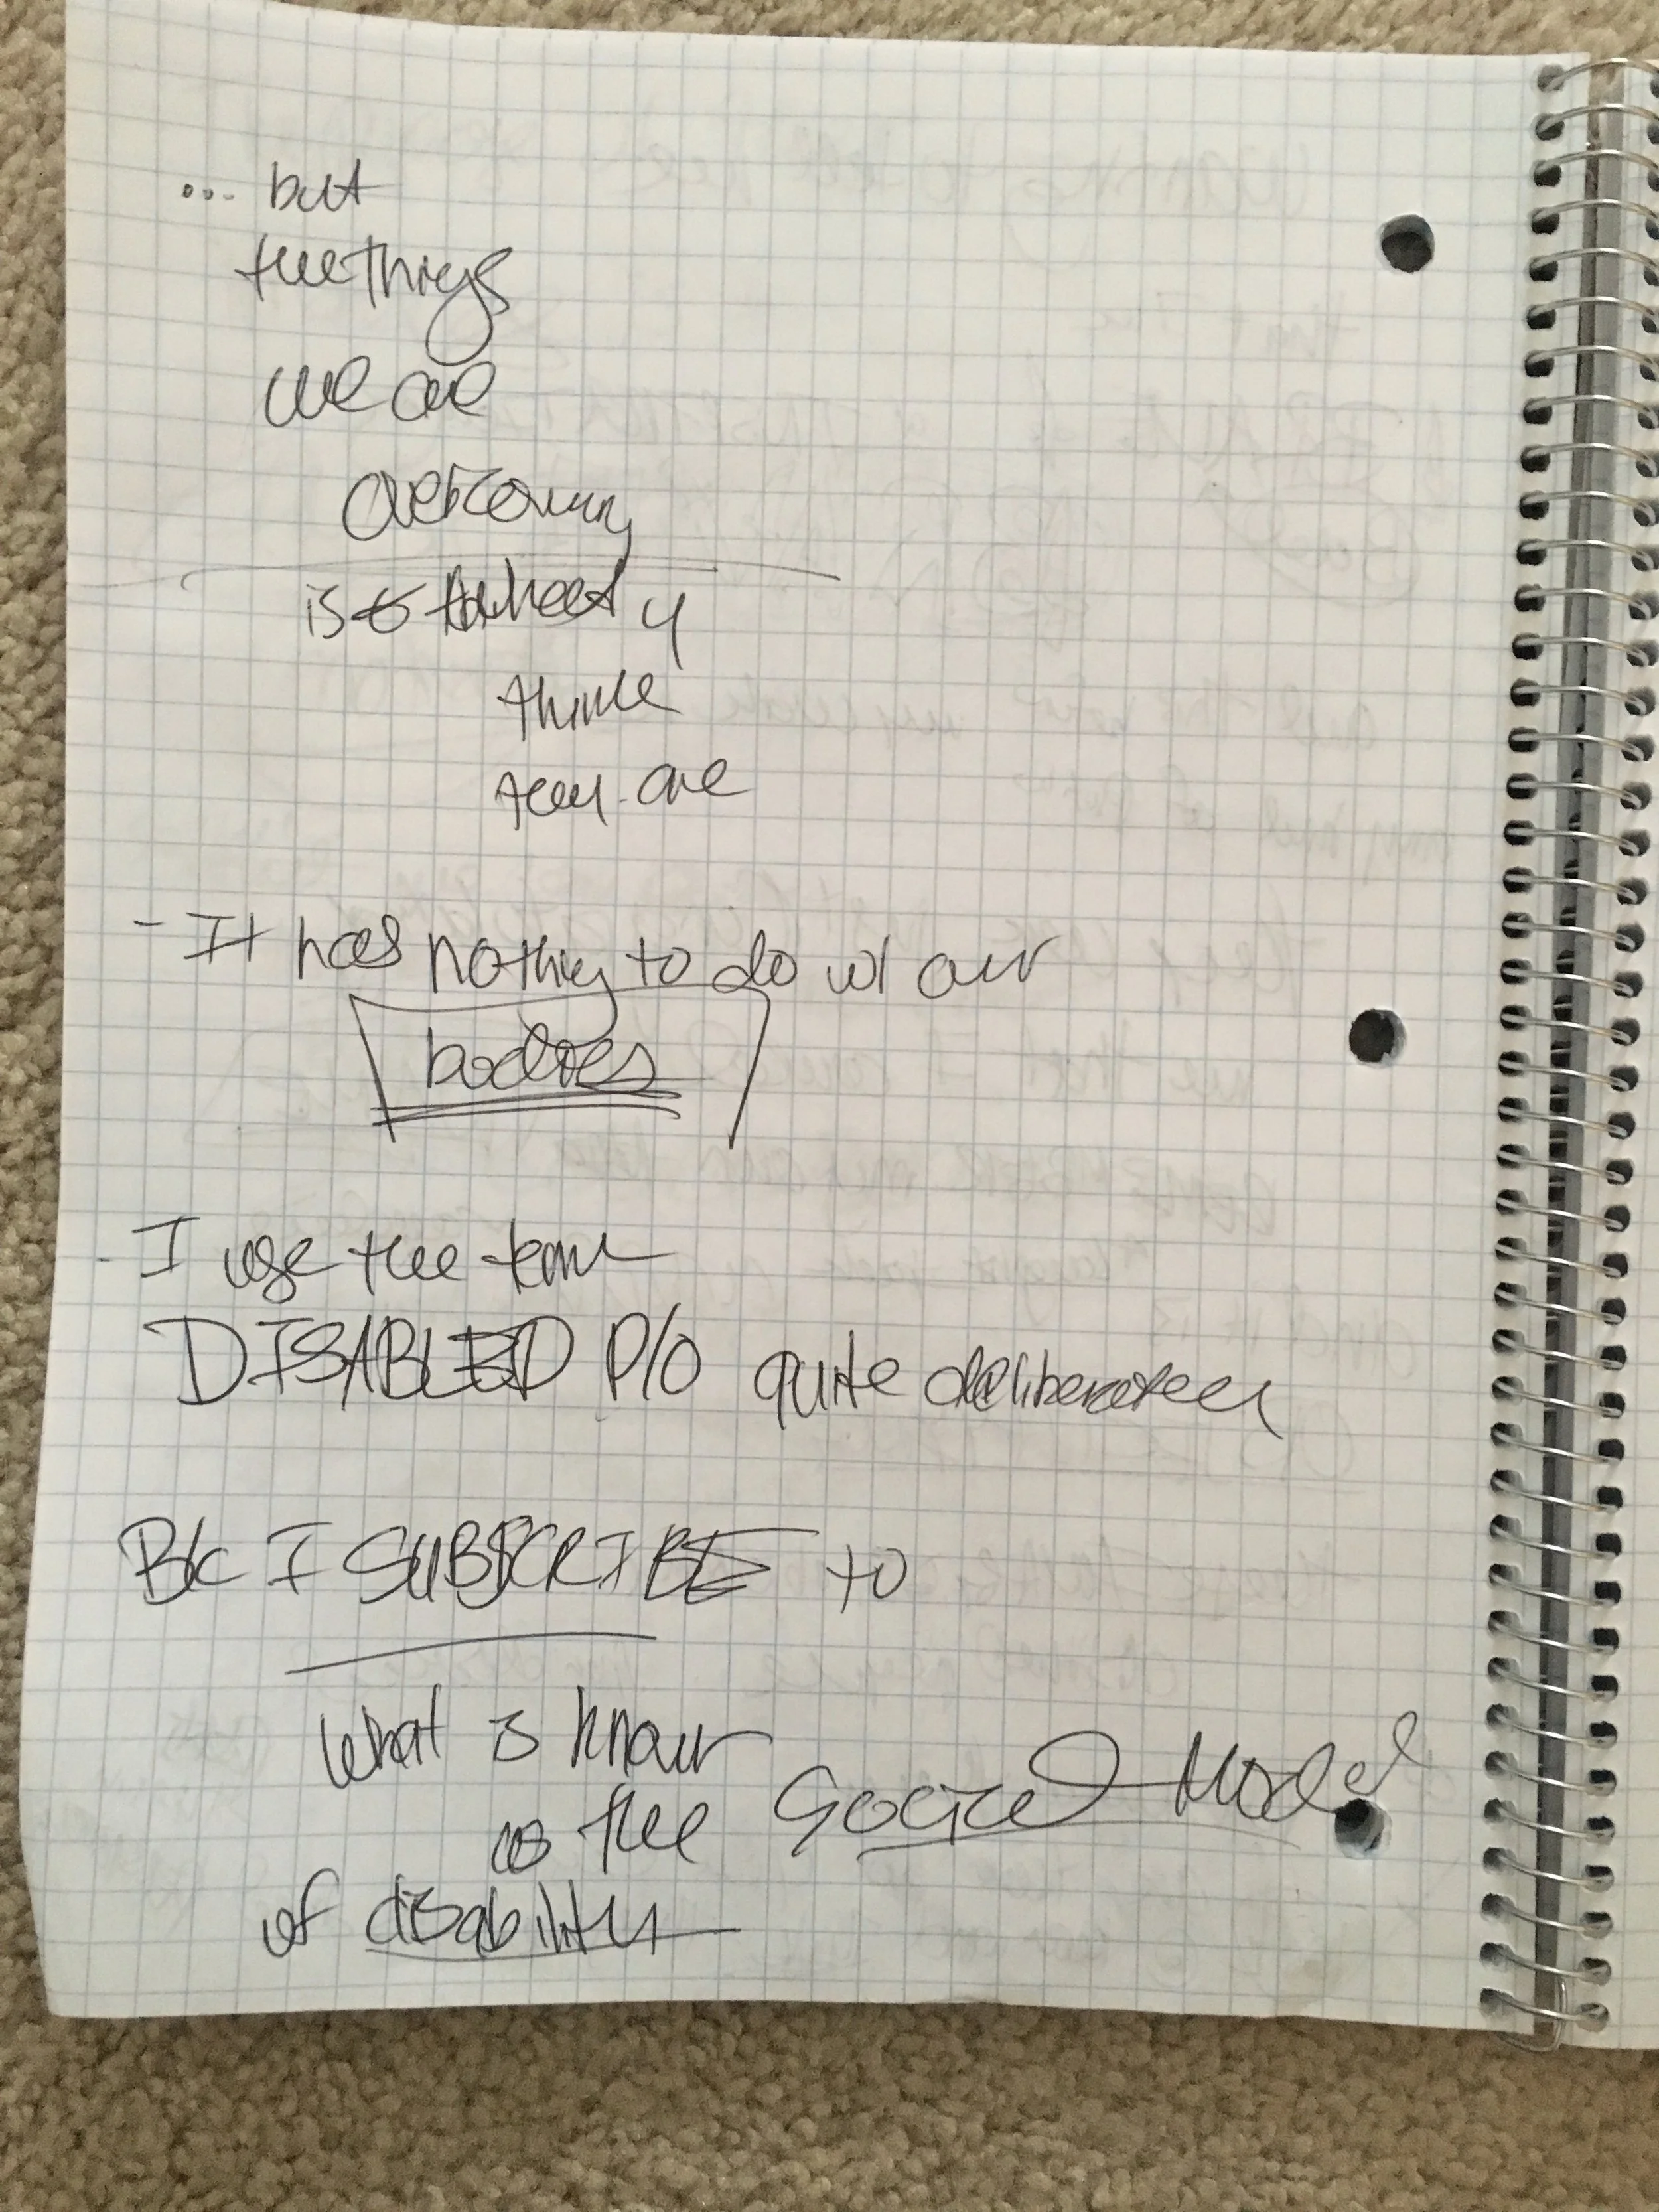 ... but
the things
we are
overcoming
is what y
think
they are
- It has nothing to do w/ our
bodies
- I use the term
DISABLED P/O quite deliberately
B/c I SUBSCRIBE to
what is known
as the Social Model
of disability